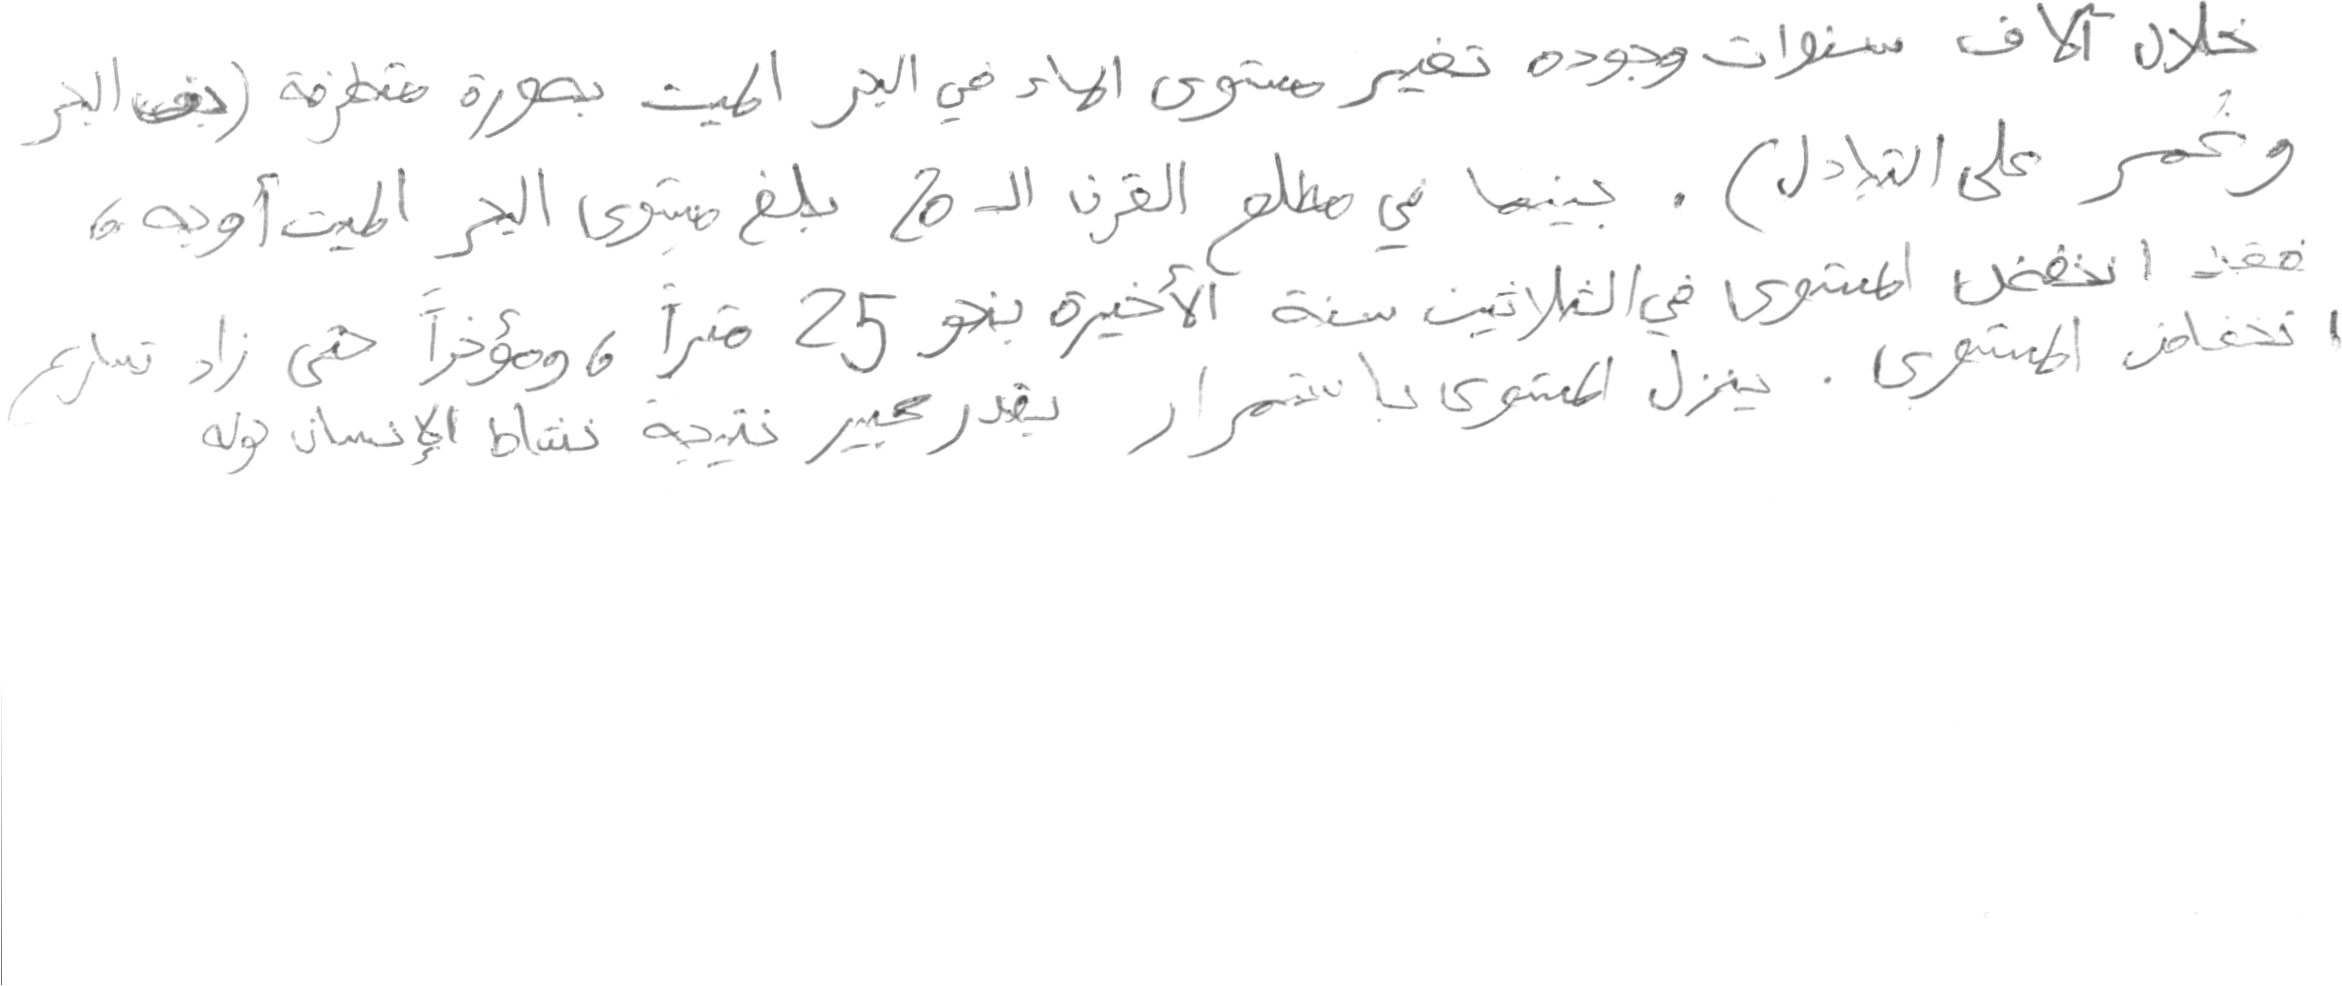 خلال آلاف سنوات وجوده تغير مستوى الماء في البحر الميت بصورة متطرفة (جف البحر
وغُمر على التبادل). بينما في مطلع القرن الـ 20 بلغ مستوى البحر الميت أوجه،
فقد انخفض المستوى في الثلاثين سنة الأخيرة بنحو 25 متراً، ومؤخراً حتى زاد تسارع
انخفاض المستوى. ينزل المستوى باستمرار بقدر كبير نتيجة نشاط الإنسان حوله